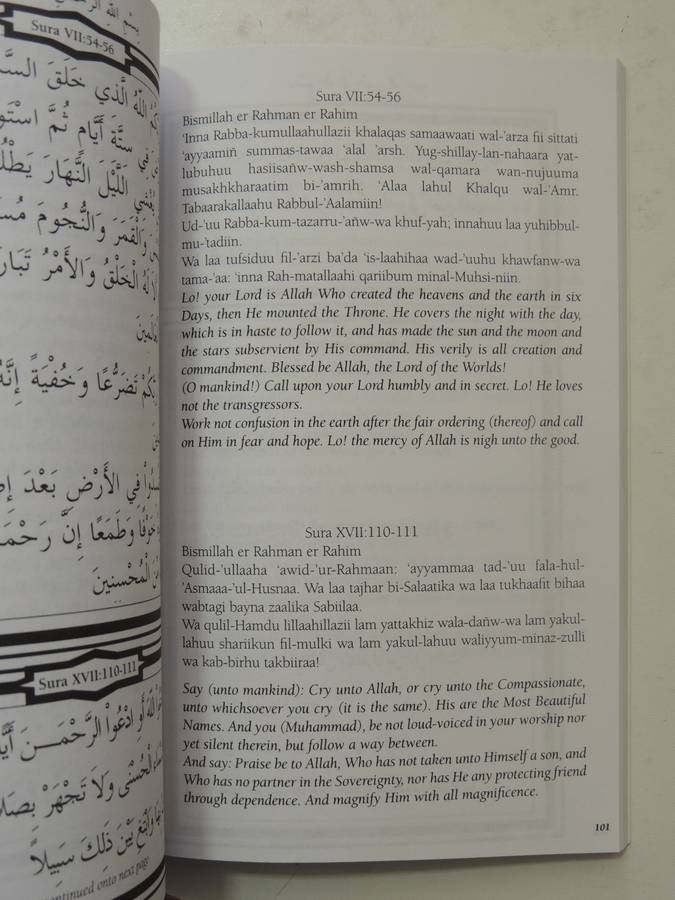 Sura VII:54-56
اللهُ الَّذِي خَلَقَ
سِتَّةِ أَيَّامٍ ثُمَّ
اللَّيْلَ النَّهَارَ
وَالْقَمَرَ وَالنُّجُومَ
لَهُ الْخَلْقُ وَالأَمْرُ
تَضَرُّعًا وَخُفْيَةً إِنَّهُ
فِي الأَرْضِ بَعْدَ
خَوْفًا وَطَمَعًا إِنَّ
الْمُحْسِنِينَ
Sura XVII:110-111
أَوِ ادْعُواْ الرَّحْمَـنَ
الْحُسْنَى وَلاَ تَجْهَرْ
وَابْتَغِ بَيْنَ ذَلِكَ سَبِيلاً
onto next page
Sura VII:54-56
Bismillah er Rahman er Rahim
'Inna Rabba-kumullaahullazii khalaqas samaawaati wal-'arza fii sittati
'ayyaamiñ summas-tawaa 'alal 'arsh. Yug-shillay-lan-nahaara yat-
lubuhuu hasiisañw-wash-shamsa wal-qamara wan-nujuuma
musakhkharaatim bi-'amrih. 'Alaa lahul Khalqu wal-'Amr.
Tabaarakallaahu Rabbul-'Aalamiin!
Ud-'uu Rabba-kum-tazarru-'añw-wa khuf-yah; innahuu laa yuhibbul-
mu-'tadiin.
Wa laa tufsiduu fil-'arzi ba'da 'is-laahihaa wad-'uuhu khawfanw-wa
tama-'aa: 'inna Rah-matallaahi qariibum minal-Muhsi-niin.
Lo! your Lord is Allah Who created the heavens and the earth in six
Days, then He mounted the Throne. He covers the night with the day,
which is in haste to follow it, and has made the sun and the moon and
the stars subservient by His command. His verily is all creation and
commandment. Blessed be Allah, the Lord of the Worlds!
(O mankind!) Call upon your Lord humbly and in secret. Lo! He loves
not the transgressors.
Work not confusion in the earth after the fair ordering (thereof) and call
on Him in fear and hope. Lo! the mercy of Allah is nigh unto the good.
Sura XVII:110-111
Bismillah er Rahman er Rahim
Qulid-'ullaaha 'awid-'ur-Rahmaan: 'ayyammaa tad-'uu fala-hul-
'Asmaaa-'ul-Husnaa. Wa laa tajhar bi-Salaatika wa laa tukhaafit bihaa
wabtagi bayna zaalika Sabiilaa.
Wa qulil-Hamdu lillaahillazii lam yattakhiz wala-dañw-wa lam yakul-
lahuu shariikun fil-mulki wa lam yakul-lahuu waliyyum-minaz-zulli
wa kab-birhu takbiiraa!
Say (unto mankind): Cry unto Allah, or cry unto the Compassionate,
unto whichsoever you cry (it is the same). His are the Most Beautiful
Names. And you (Muhammad), be not loud-voiced in your worship nor
yet silent therein, but follow a way between.
And say: Praise be to Allah, Who has not taken unto Himself a son, and
Who has no partner in the Sovereignty, nor has He any protecting friend
through dependence. And magnify Him with all magnificence.
101